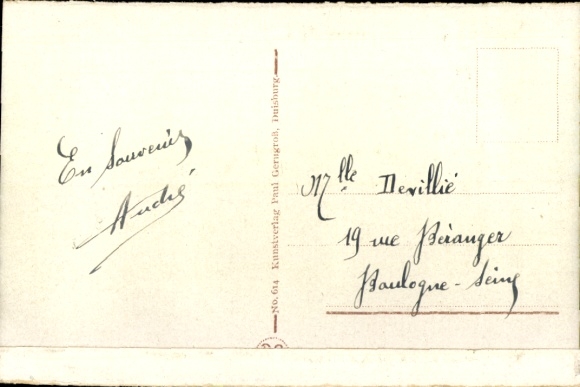 En Souvenir
André
No. 614 Kunstverlag Paul Gerngroß, Duisburg.
Mlle Devillié
19 rue Béranger
Boulogne-Seine